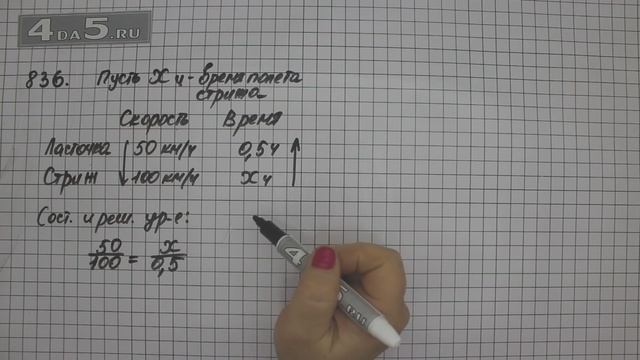 4DA5.RU
836. Пусть X ч - время полета
стрижа
Скорость Время
Ласточка 50 км/ч 0,5 ч
Стриж 100 км/ч X ч
Сост. и реш. ур-е:
50/100 = x/0,5
4 5.RU